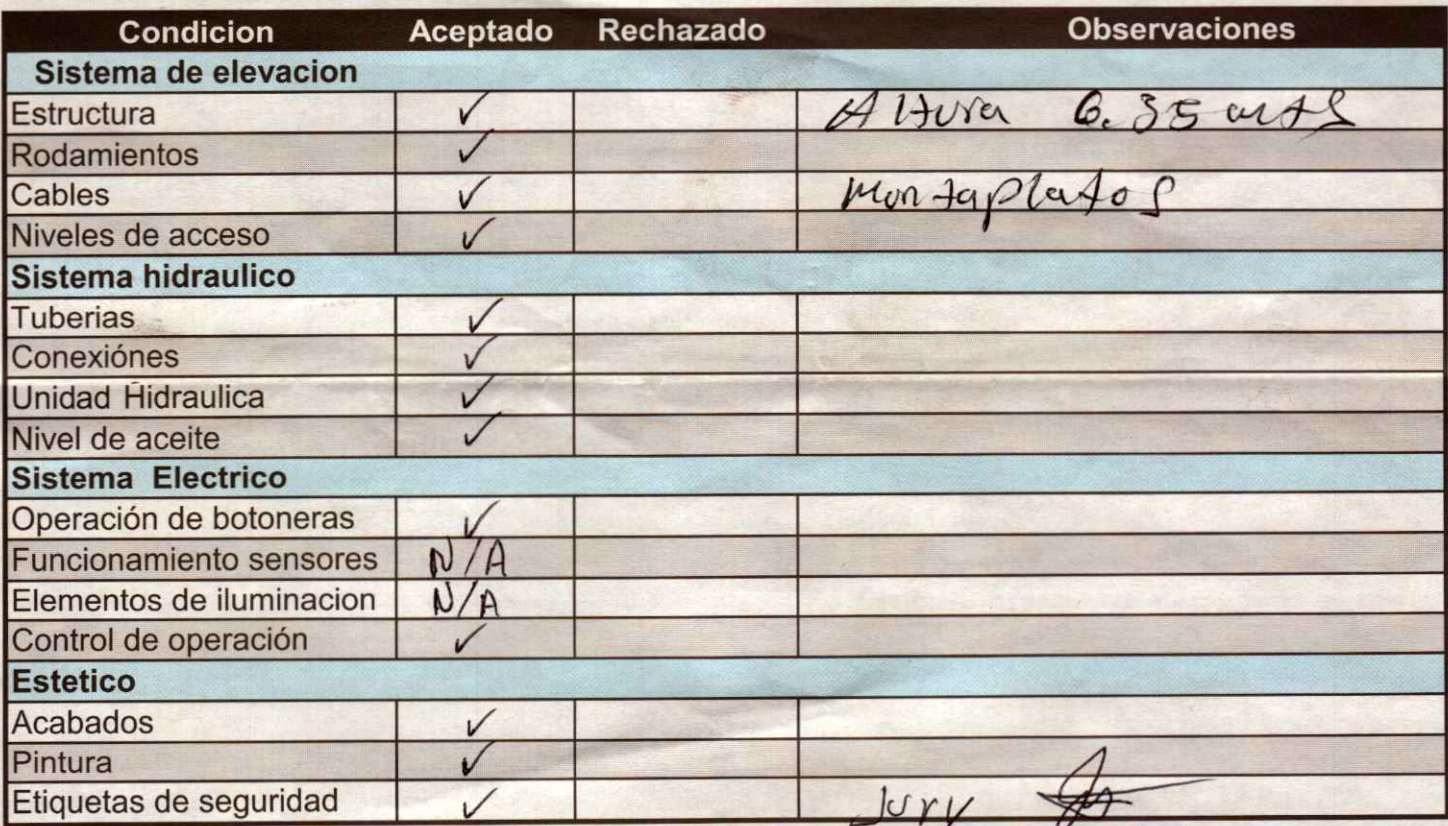 Condicion Aceptado Rechazado Observaciones
Sistema de elevacion
Estructura ✓ Altura 6.35 mts
Rodamientos ✓
Cables ✓ Montaplatos
Niveles de acceso ✓
Sistema hidraulico
Tuberias ✓
Conexiónes ✓
Unidad Hidraulica ✓
Nivel de aceite ✓
Sistema Electrico
Operación de botoneras ✓
Funcionamiento sensores N/A
Elementos de iluminacion N/A
Control de operación ✓
Estetico
Acabados ✓
Pintura ✓
Etiquetas de seguridad ✓